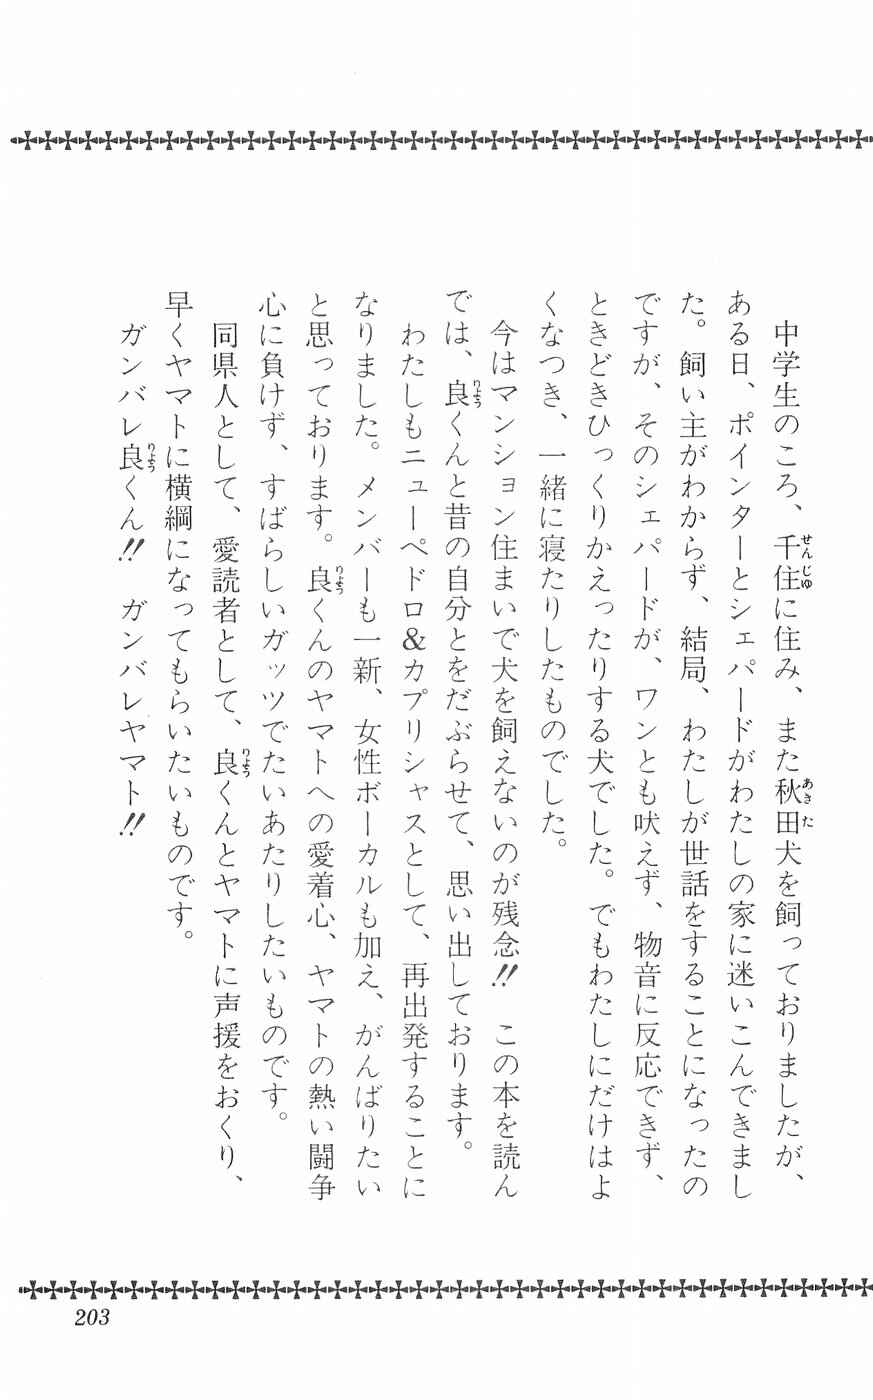 中学生のころ、千住に住み、また秋田犬を飼っておりましたが、
ある日、ポインターとシェパードがわたしの家に迷いこんできまし
た。飼い主がわからず、結局、わたしが世話をすることになったの
ですが、そのシェパードが、ワンとも吠えず、物音に反応できず、
ときどきひっくりかえったりする犬でした。でもわたしにだけはよ
くなつき、一緒に寝たりしたものでした。
　今はマンション住まいで犬を飼えないのが残念!!　この本を読ん
では、良くんと昔の自分とをだぶらせて、思い出しております。
　わたしもニューペドロ&カプリシャスとして、再出発することに
なりました。メンバーも一新、女性ボーカルも加え、がんばりたい
と思っております。良くんのヤマトへの愛着心、ヤマトの熱い闘争
心に負けず、すばらしいガッツでたいあたりしたいものです。
　同県人として、愛読者として、良くんとヤマトに声援をおくり、
早くヤマトに横綱になってもらいたいものです。
　ガンバレ良くん!!　ガンバレヤマト!!
203